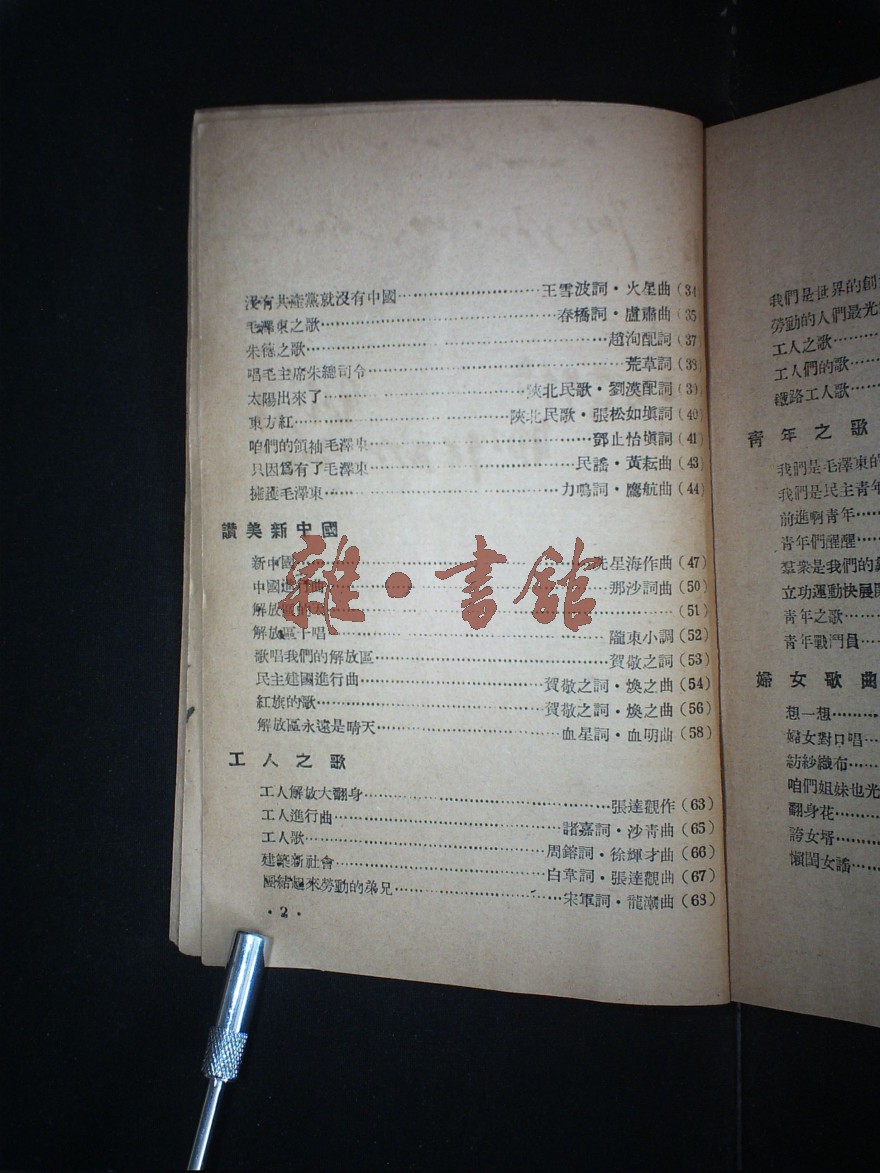 沒有共產黨就沒有中國………王雪波詞·火星曲(34
毛澤東之歌………春橋詞·盧肅曲(35
朱德之歌………趙洵配詞(37
唱毛主席朱總司令………荒草詞(38
太陽出來了………陝北民歌·劉漠配詞(39
東方紅………陝北民歌·張松如填詞(40
咱們的領袖毛澤東………鄧止怡塡詞(41)
只因爲有了毛澤東………民謠·黃耘曲(43)
擁護毛澤東………力鳴詞·鷹航曲(44)
讚美新中國
新中國………冼星海作曲(47)
中國進行曲………那沙詞曲(50)
解放區………(51)
解放區十唱………隴東小調(52)
歌唱我們的解放區………賀敬之詞(53)
民主建國進行曲………賀敬之詞·煥之曲(54)
紅旗的歌………賀敬之詞·煥之曲(56)
解放區永遠是晴天………血星詞·血明曲(58)
工人之歌
工人解放大翻身………張達觀作(63)
工人進行曲………諸嘉詞·沙青曲(65)
工人歌………周鎔詞·徐輝才曲(66)
建築新社會………白韋詞·張達觀曲(67)
團結起來勞動的弟兄………宋軍詞·龍潮曲(68)
·2·
我們是世界的創
勞動的人們最光
工人之歌………
工人們的歌………
鐵路工人歌………
青年之歌
我們是毛澤東的
我們是民主青年
前進啊青年………
青年們醒醒………
羣衆是我們的
立功運動快展開
青年之歌………
青年戰鬥員………
婦女歌曲
想一想………
婦女對口唱………
紡紗織布………
咱們姐妹也光
翻身花………
誇女壻………
懶閨女謠………
雜·書館